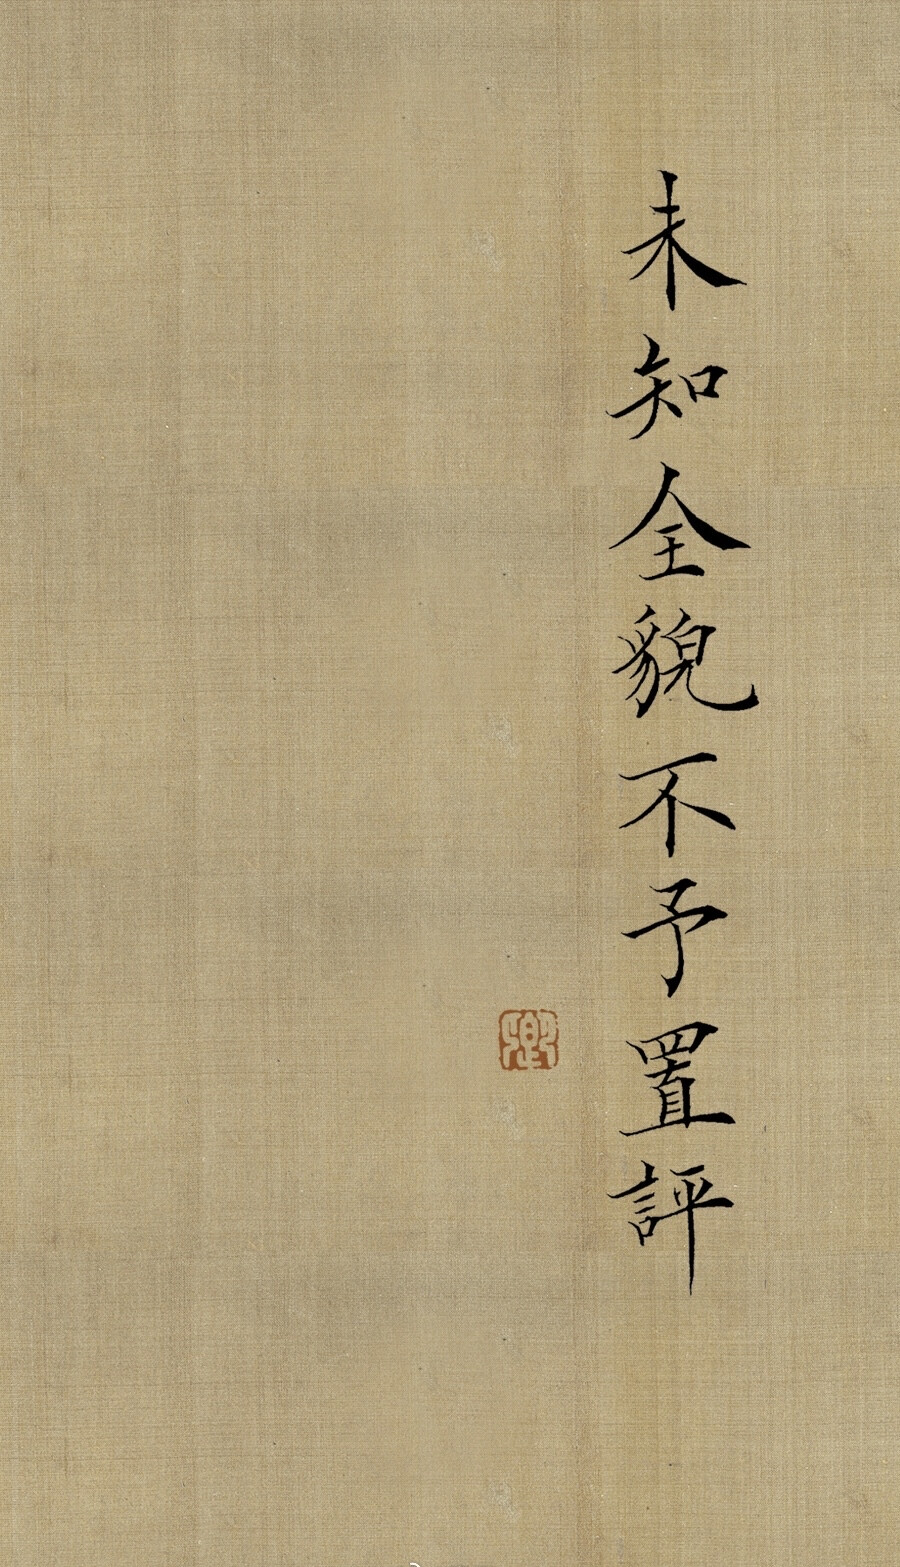 未知全貌不予置評